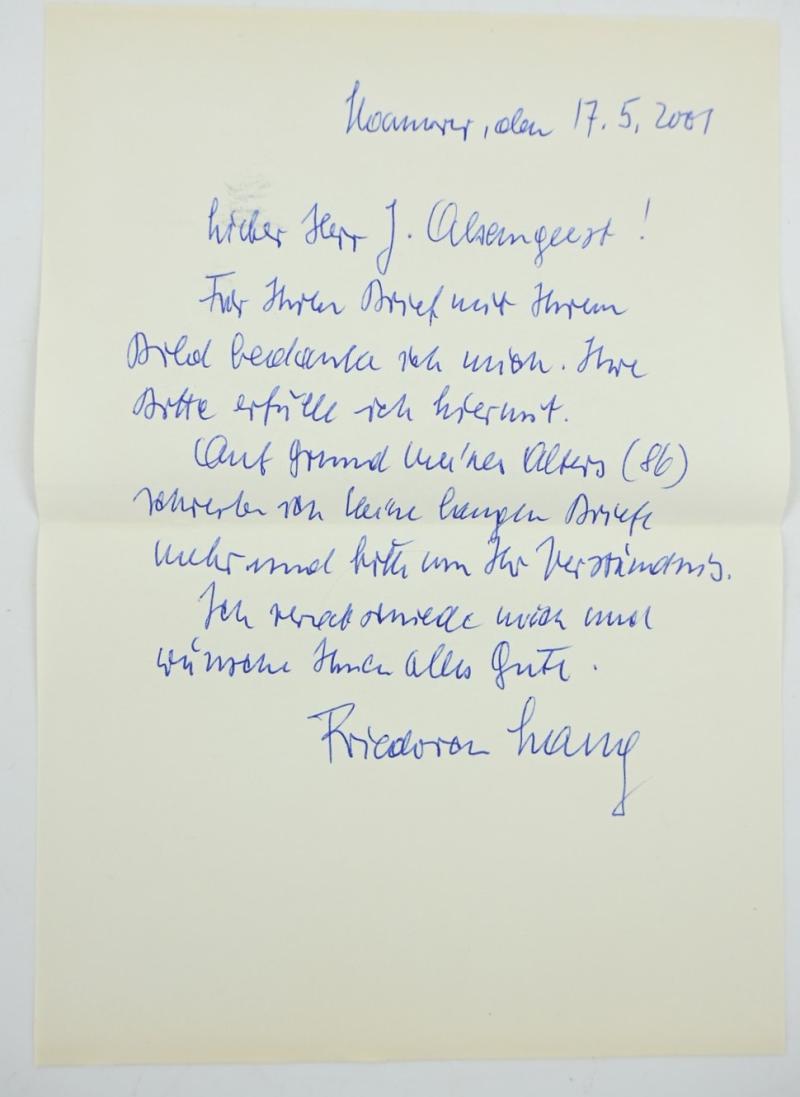 Hannover, den 17.5.2001
Lieber Herr J. Alsemgeest!
Für Ihren Brief mit Ihrem
Bild bedanke ich mich. Ihre
Bitte erfülle ich hiermit.
Auf Grund meines Alters (86)
schreibe ich keine langen Briefe
mehr und bitte um Ihr Verständnis.
Ich verabschiede mich und
wünsche Ihnen alles Gute.
Friedrich Lang